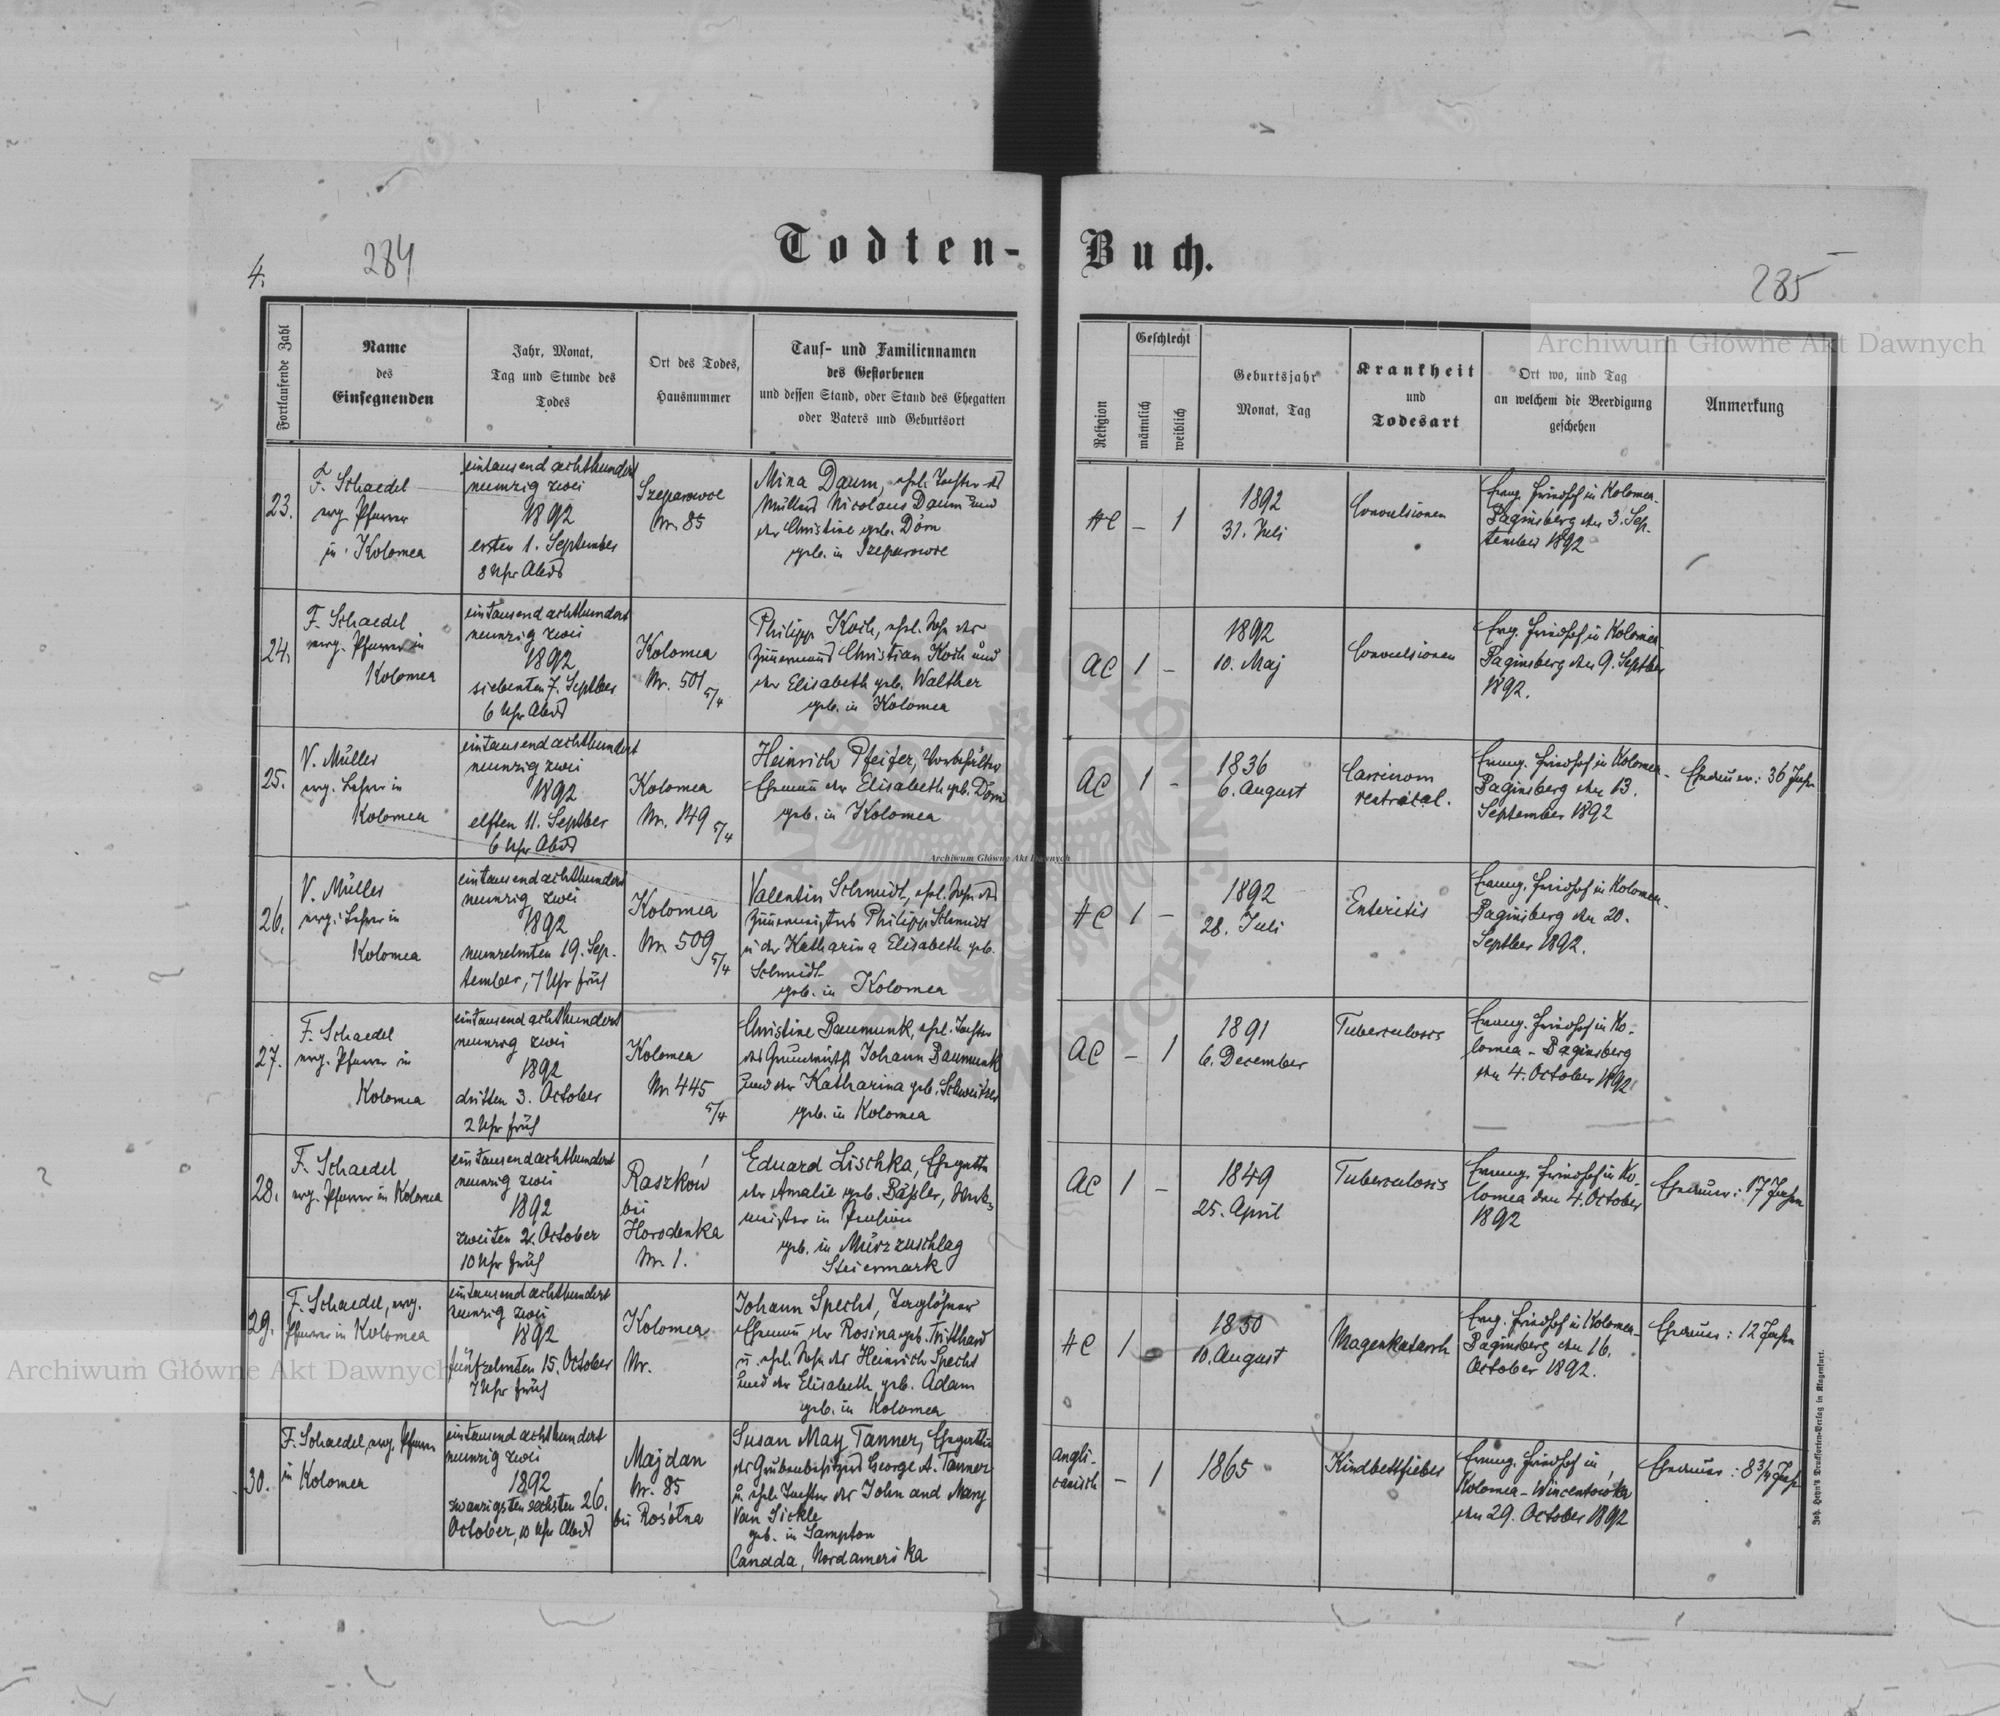 4.
284
Todten-
Buch.
285
Fortlaufende Zahl
Name
des
Einsegnenden
Jahr, Monat,
Tag und Stunde des
Todes
Ort des Todes,
Hausnummer
Tauf- und Familiennamen
des Gestorbenen
und dessen Stand, oder Stand des Ehegatten
oder Vaters und Geburtsort
Religion
Geschlecht
männlich
weiblich
Geburtsjahr
Monat, Tag
Krankheit
und
Todesart
Ort wo, und Tag
an welchem die Beerdigung
geschehen
Anmerkung
23.
F. Schaedel
evg. Pfarrer
in Kolomea
eintausend achthundert
neunzig zwei
1892
ersten 1. September
8 Uhr Abds
Szeparowce
Nr. 85
Mina Daum, ehel. Tochter des
Müllers Nicolaus Daum und
der Christine geb. Dörn
geb. in Szeparowce
HC
–
1
1892
31. Juli
Convulsionen
Evang. Friedhof in Kolomea-
Baginsberg den 3. Sep-
tember 1892
24.
F. Schaedel
evg. Pfarrer in
Kolomea
eintausend achthundert
neunzig zwei
1892
siebenten 7. Septber
6 Uhr Abds
Kolomea
Nr. 501 5/4
Philipp Koch, ehel. Sohn des
Zimmermanns Christian Koch und
der Elisabeth geb. Walther
geb. in Kolomea
AC
1
–
1892
10. Maj
Convulsionen
Evg. Friedhof in Kolomea-
Baginsberg den 9. Septber
1892.
25.
V. Müller
evg. Lehrer in
Kolomea
eintausend achthundert
neunzig zwei
1892
elften 11. Septber
6 Uhr Abds
Kolomea
Nr. 149 5/4
Heinrich Pfeifer,
Ehemann der Elisabeth geb. Dörn
geb. in Kolomea
AC
1
–
1836
6. August
Carcinom
Evang. Friedhof in Kolomea-
Baginsberg den 13.
September 1892
Ehedauer: 36 Jahre
26.
V. Müller
evg. Lehrer in
Kolomea
eintausend achthundert
neunzig zwei
1892
neunzehnten 19. Sep-
tember, 7 Uhr früh
Kolomea
Nr. 509 5/4
Valentin Schmidt, ehel. Sohn des
Zimmermeisters Philipp Schmidt
u der Katharina Elisabeth geb.
Schmidt
geb. in Kolomea
HC
1
–
1892
28. Juli
Enteritis
Evang. Friedhof in Kolomea-
Baginsberg den 20.
Septber 1892.
27.
F. Schaedel
evg. Pfarrer in
Kolomea
eintausend achthundert
neunzig zwei
1892
dritten 3. October
2 Uhr früh
Kolomea
Nr. 445
5/4
Christine Baumunk, ehel. Tochter
des Grundwirths Johann Baumunk
und der Katharina geb. Schweitzer
geb. in Kolomea
AC
–
1
1891
6. December
Tuberculosis
Evang. Friedhof in Ko-
lomea-Baginsberg
den 4. October 1892
28.
F. Schaedel
evg. Pfarrer in Kolomea
eintausend achthundert
neunzig zwei
1892
zweiten 2. October
10 Uhr früh
Raszków
bei
Horodenka
Nr. 1.
Eduard Lischka, Ehegatte
der Amalie geb. Bäßler,
meister in Pension
geb. in Mürzzuschlag
Steiermark
AC
1
–
1849
25. April
Tuberculosis
Evang. Friedhof in Ko-
lomea den 4. October
1892
Ehedauer: 17 Jahre
29.
F. Schaedel, evg.
Pfarrer in Kolomea
eintausend achthundert
neunzig zwei
1892
fünfzehnten 15. October
7 Uhr früh
Kolomea
Nr.
Johann Specht, Taglöhner
Ehemann der Rosina geb. Tritthard
u ehel. Sohn des Heinrich Specht
und der Elisabeth geb. Adam
geb. in Kolomea
HC
1
1850
10. August
Magenkatarrh
Evg. Friedhof in Kolomea-
Baginsberg den 16.
October 1892.
Ehedauer: 12 Jahre
30.
F. Schaedel, evg. Pfarrer
in Kolomea
eintausend achthundert
neunzig zwei
1892
zwanzigsten sechsten 26.
October, 10 Uhr Abds
Majdan
Nr. 85
bei Rosólna
Susan May Tanner, Ehegattin
des Grubenbesitzers George A. Tanner
u. ehel. Tochter des John and Mary
Van Sickle
geb. in Sampton
Canada, Nordamerika
Angli-
canisch
–
1
1865
Kindbettfieber
Evang. Friedhof in
Kolomea-Wincentówka
den 29. October 1892
Ehedauer: 8 3/4 Jahr
Joh. Heyn's Drucksorten-Verlag in Klagenfurt.
Archiwum Główne Akt Dawnych
Archiwum Główne Akt Dawnych
Archiwum Główne Akt Dawnych